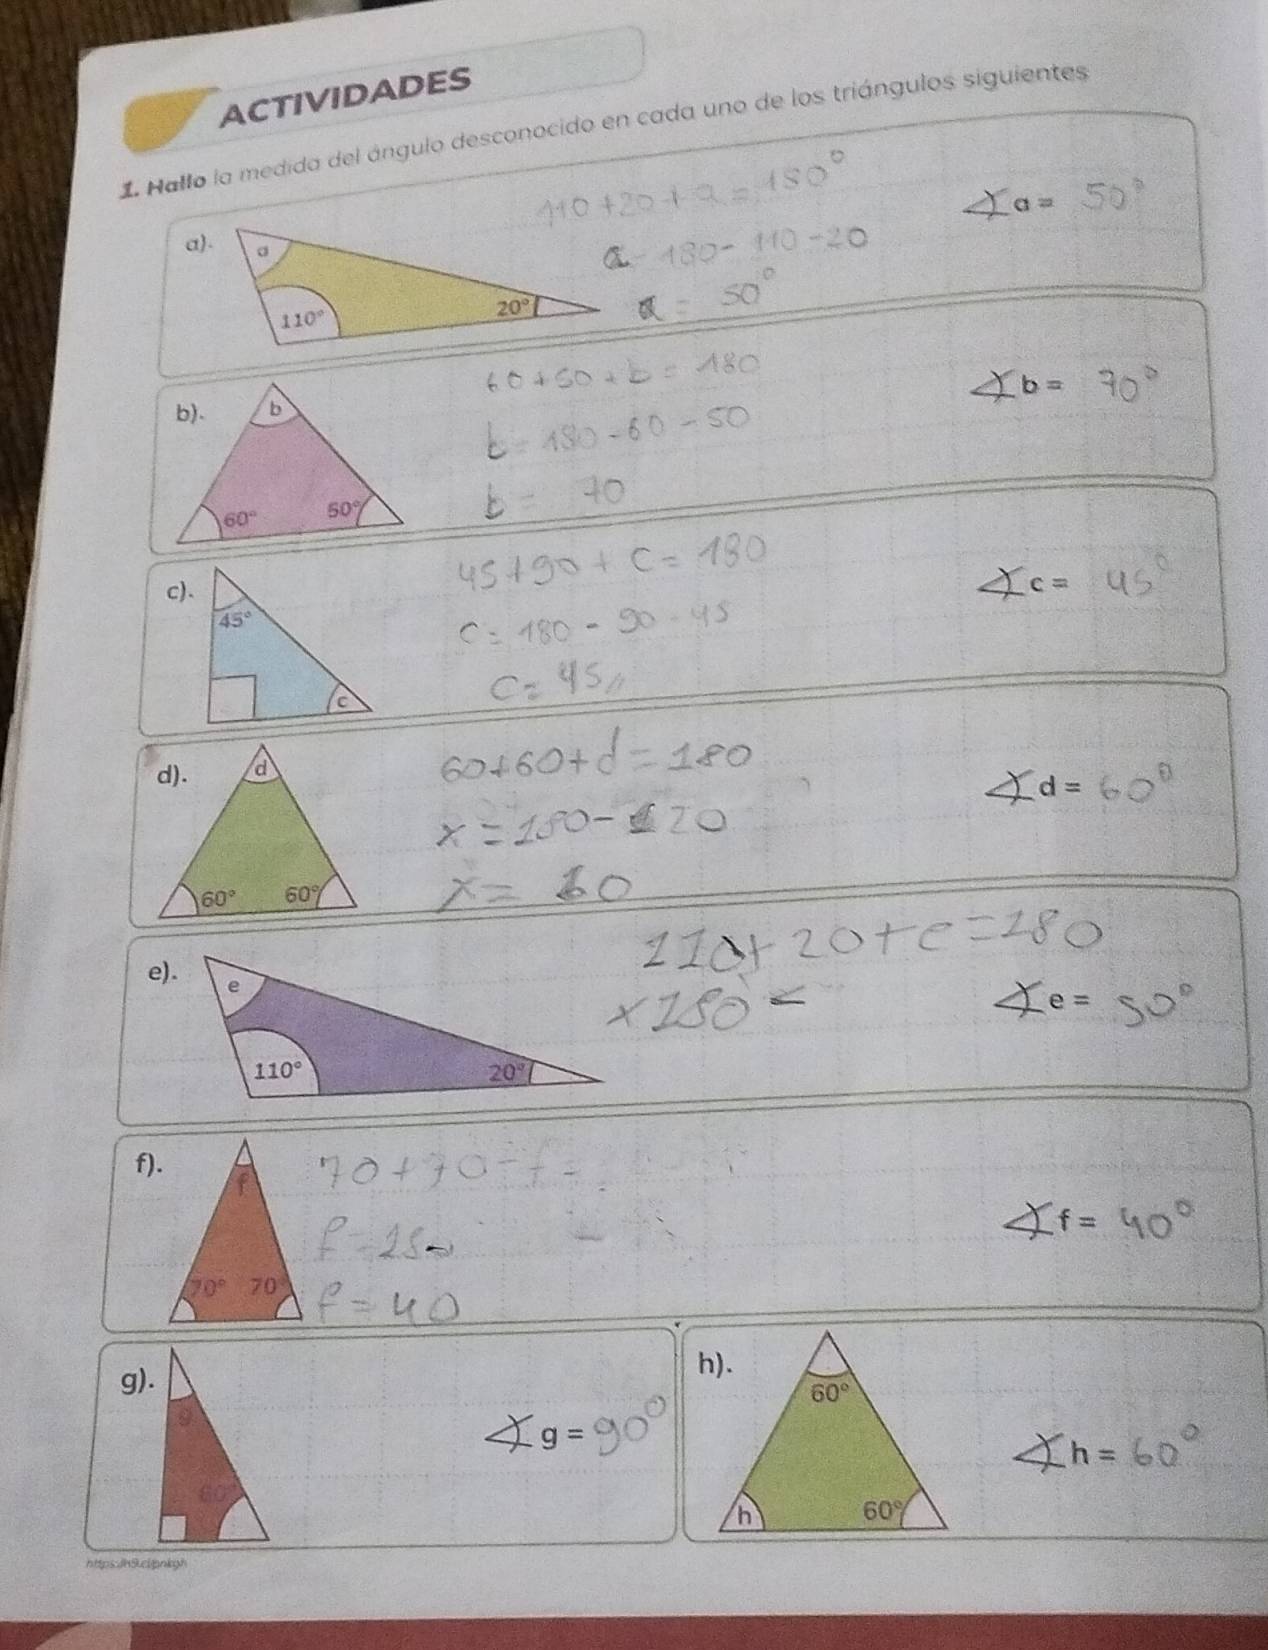 ACTIVIDADES
1. Hallo la medida del ángulo desconocido en cada uno de los triángulos siguientes
a).
a
110°
20°
110+20+a=180°
a=180-110-20
a = 50°
∡a= 50°
b).
b
60°
50°
60+50+b=180
b=180-60-50
b= 70
∡b= 70°
c).
45°
c
45+90+c=180
c=180-90-45
c=45//
∡c= 45°
d).
d
60°
60°
60+60+d=180
x=180-120
x= 60
∡d=60°
e).
e
110°
20°
110+20+e=180
x180-
∡e= 50°
f).
f
70°
70°
70+70+f=
f=18
f=40
∡f= 40°
g).
g
60°
∡g=90°
h).
60°
h
60°
∡h=60°